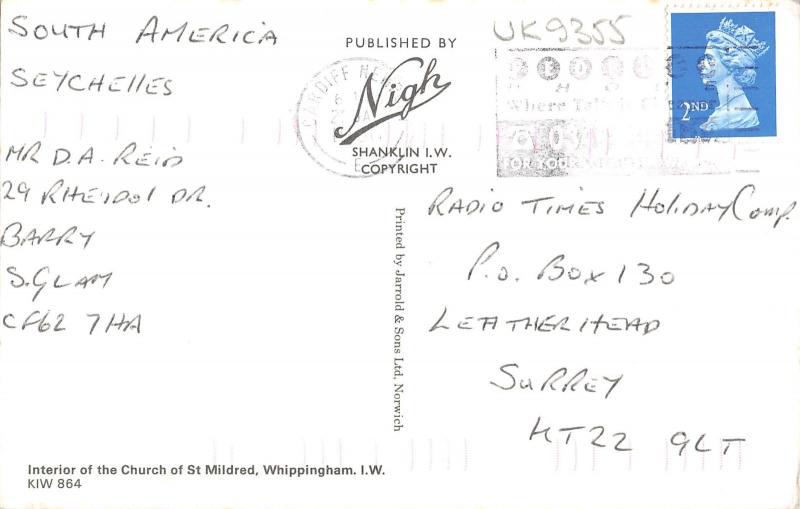 SOUTH AMERICA
SEYCHELLES
MR D.A. REID
29 RHEIDOL DR.
BARRY
S. GLAM
CF62 7HA
PUBLISHED BY
Nigh
SHANKLIN I.W.
COPYRIGHT
Printed by Jarrold & Sons Ltd, Norwich
UK9355
CARDIFF
Where
FOR YOUR
2ND
RADIO TIMES HOLIDAY COMP.
P.O. BOX 130
LEATHERHEAD
SURREY
KT22 9LT
Interior of the Church of St Mildred, Whippingham. I.W.
KIW 864